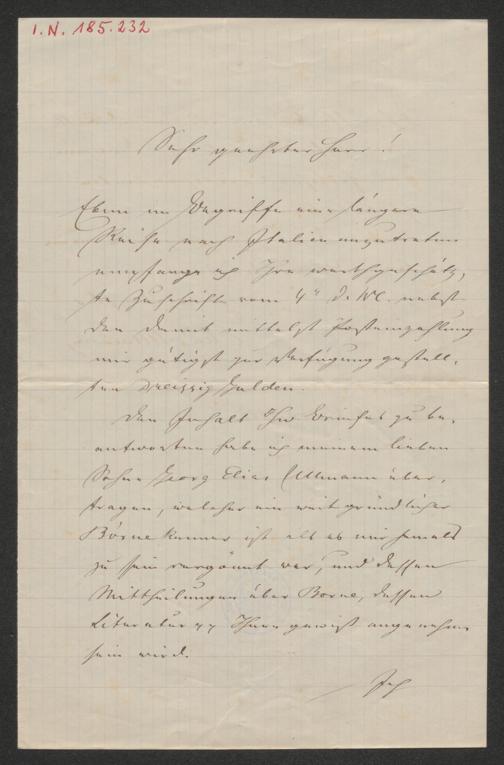 I.N. 185.232
Sehr geehrter Herr!
Eben im Begriffe eine längere
Reise nach Italien anzutreten
empfange ich Ihre werthgeschätz,
te Zuschrift vom 4" d. Mt. nebst
den damit mittelst Posteinzahlung
mir gütigst zur Verfügung gestell,
ten dreissig Gulden.
Den Inhalt Ihres Briefes zu be,
antworten habe ich meinem lieben
Sohne Georg Elias Ullmann über,
tragen, welcher ein weit gründlicher
Börne kenner ist als es mir jemals
zu sein vergönnt war, und dessen
Mittheilungen über Borne, dessen
Literatur Ihnen gewiß angenehm
sein wird.
Ich